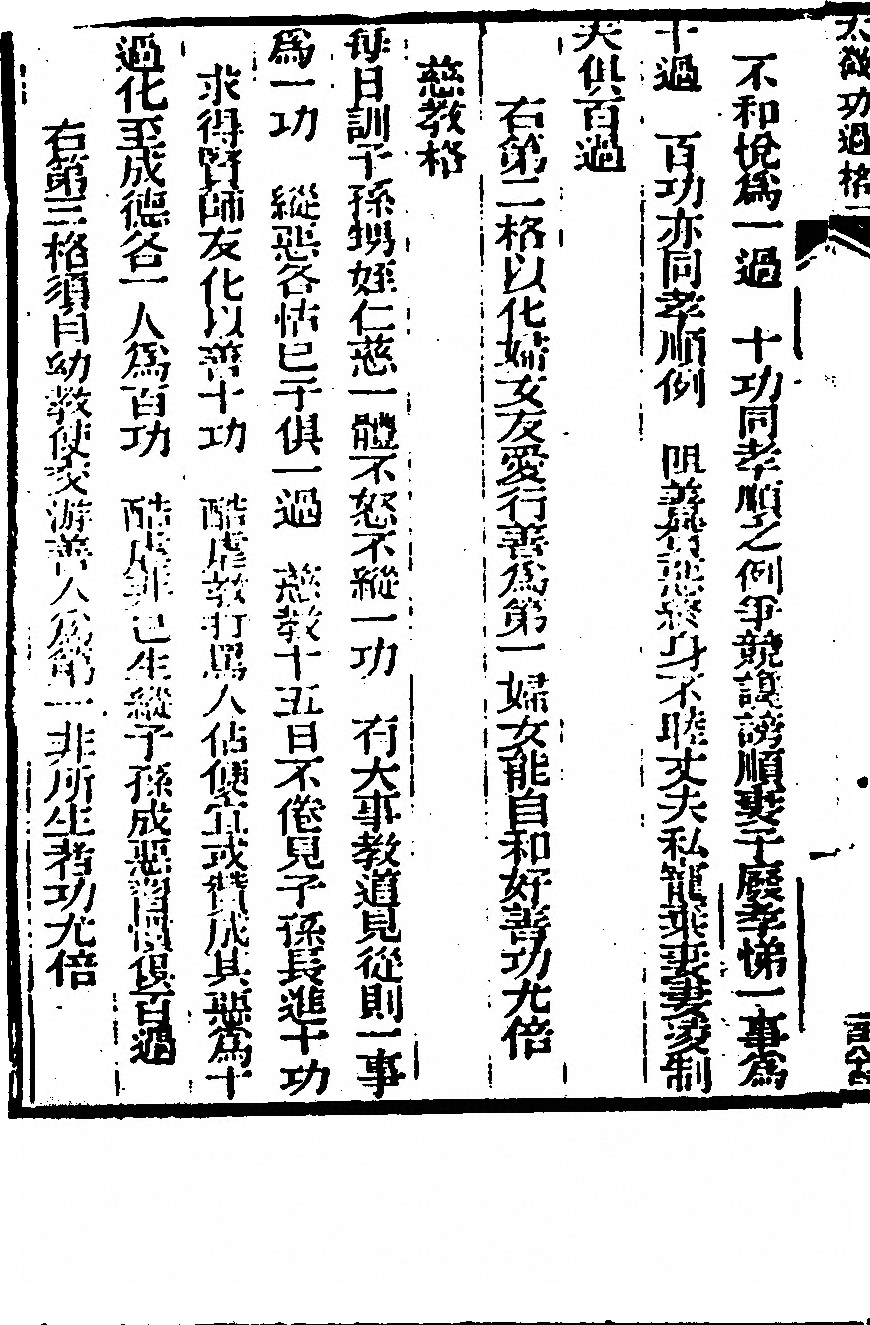 太微功過格
不和悅爲一過　十功同孝順之例爭競謗順妻子廢孝悌一事爲
十過　百功亦同孝順例　阻善終身不睦丈夫私寵棄妻妻凌制
夫俱百過
右第二格以化婦女友愛行善爲第一婦女能自和好善功尤倍
慈教格
每日訓子孫甥姪仁慈一體不怒不縱一功　有大事教道見從則一事
爲一功　縱惡各怙已子俱一過　慈教十五日不倦見子孫長進十功
求得賢師友化以善十功　酷虐教打罵人佔便宜或贊成其惡爲十
過化至成德各一人爲百功　酷虐非已生縱子孫成惡習慣俱百過
右第三格須自幼教使交游善人爲第一非所生者功尤倍